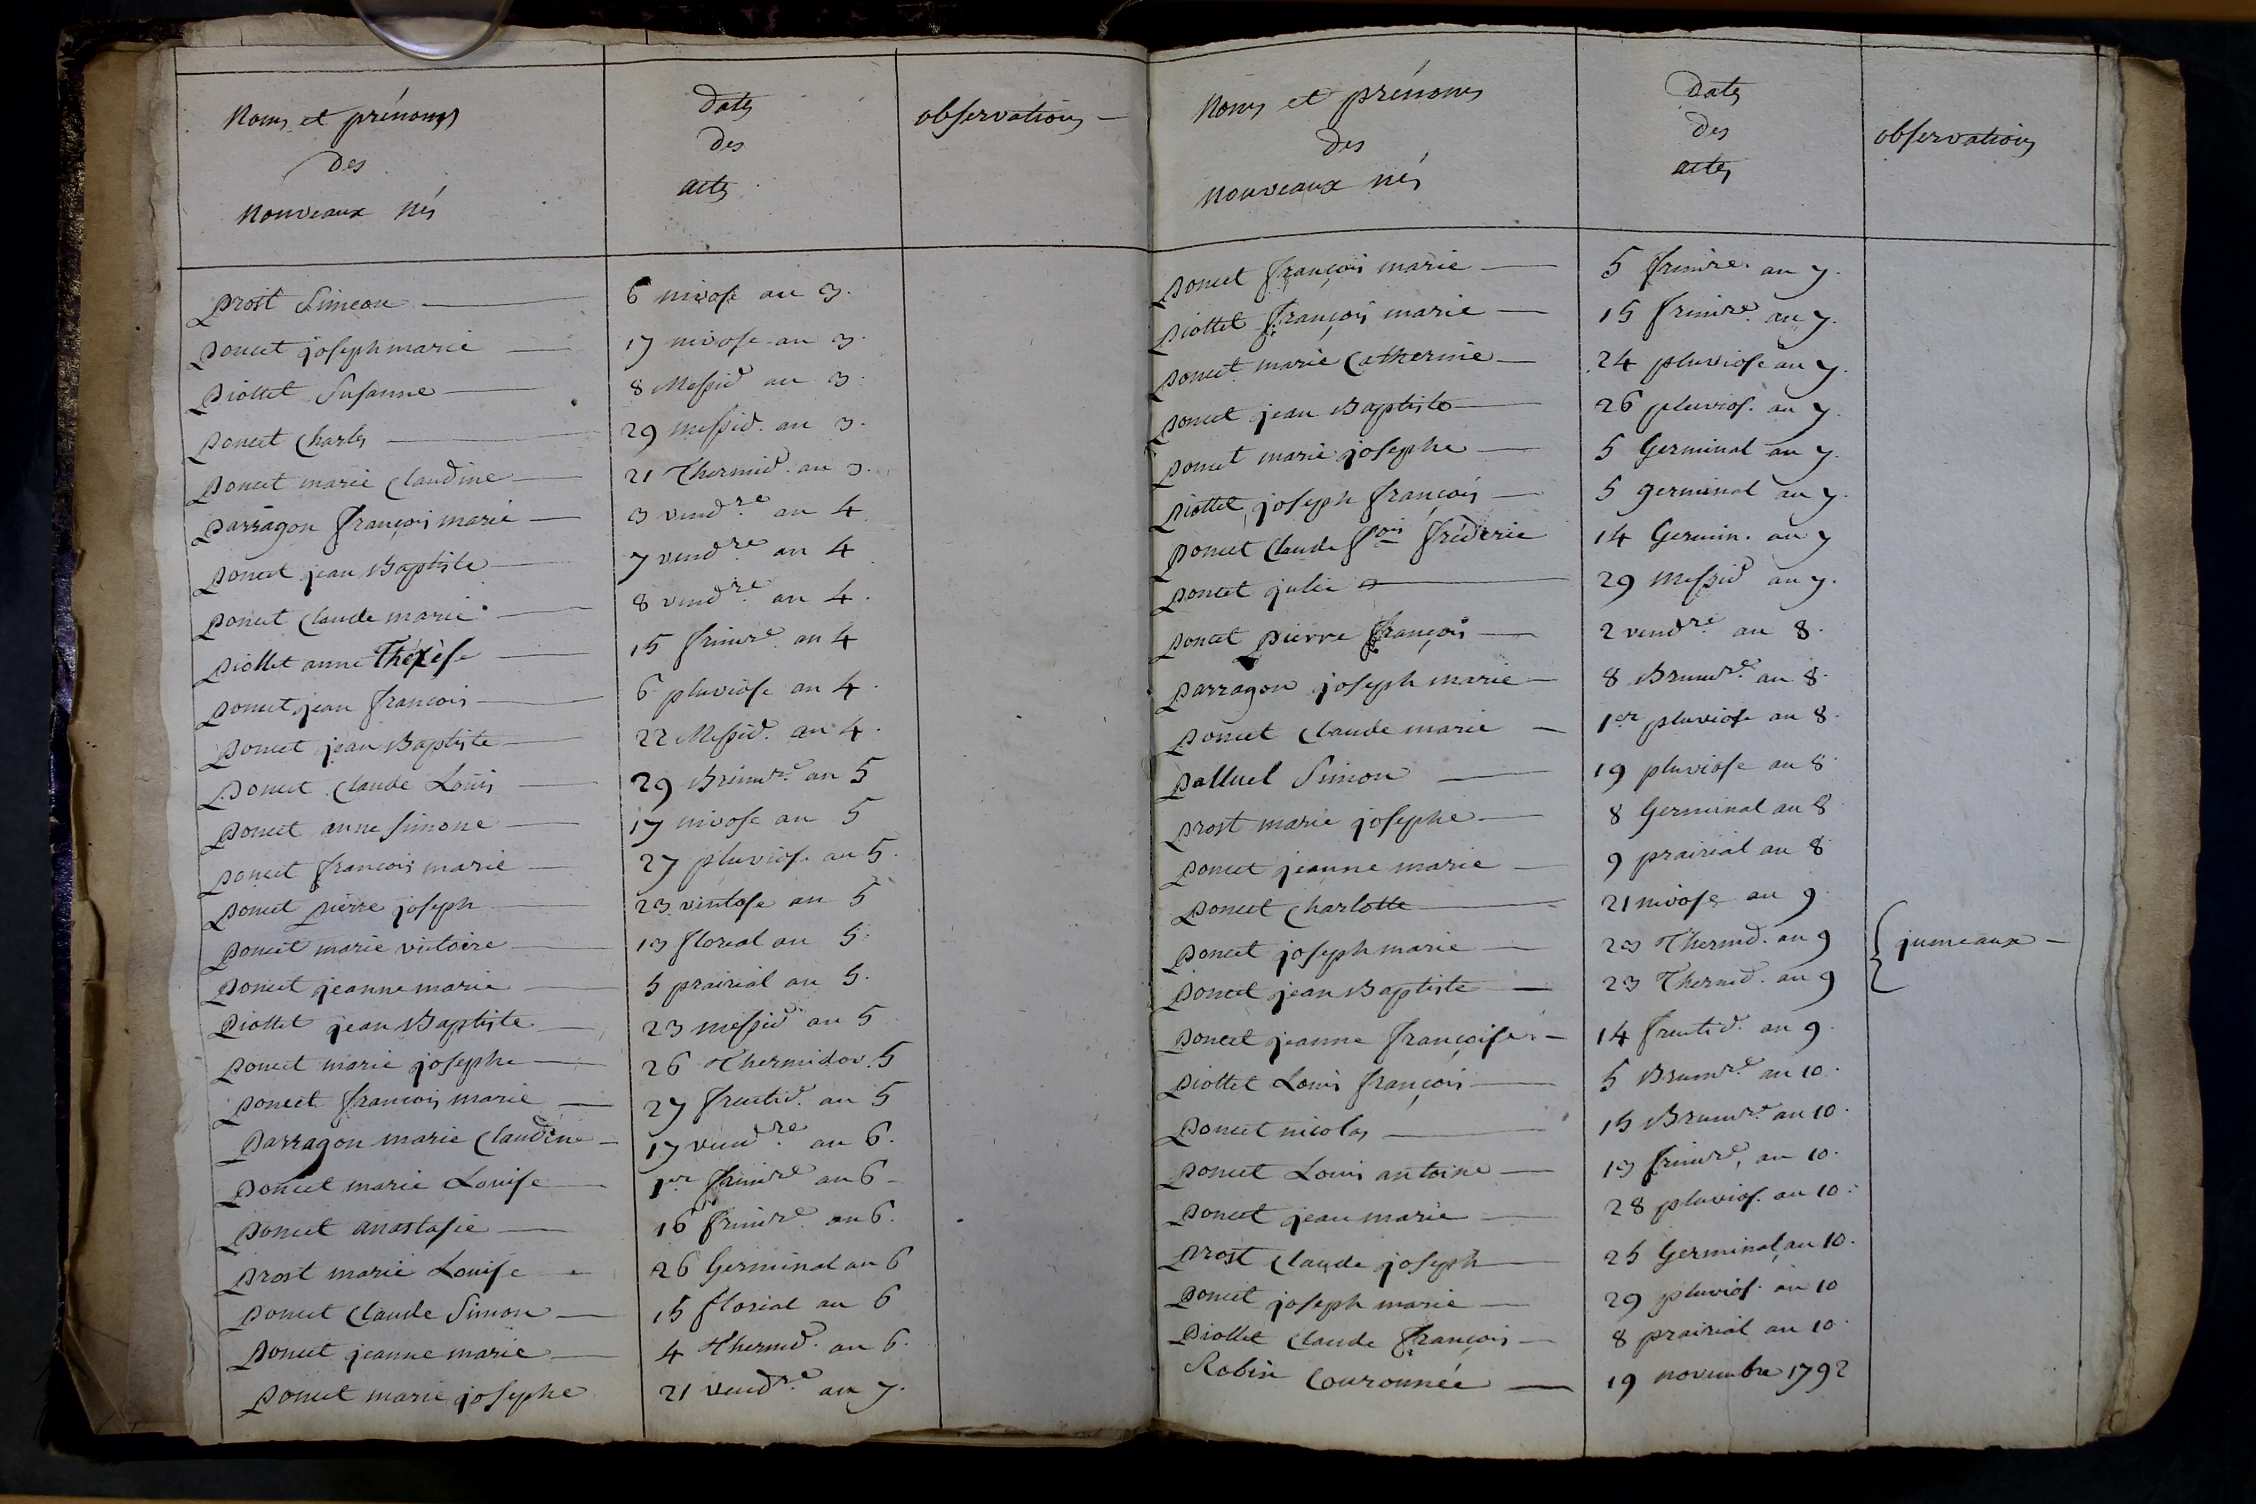 Noms et prénoms
des
Nouveaux nés
dates
des
actes
observations
Prost Simeon 6 nivose an 3.
Poncet joseph marie 17 nivose an 3.
Piollet Susanne 8 Messid. an 3.
Poncet Charles 29 messid. an 3.
Poncet marie Claudine 21 Thermid. an 3.
Parragon françois marie 3 vend.re an 4
Poncet jean Baptiste 7 vend.re an 4
Poncet Claude marie 8 vend.re an 4.
Piollet anne Thérèse 15 frim.re an 4
Poncet jean françois 6 pluviose an 4.
Poncet jean Baptiste 22 Messid. an 4.
Poncet Claude Louis 29 Brum.re an 5
Poncet anne Simone 17 nivose an 5
Poncet françois marie 27 pluviose an 5.
Poncet pierre joseph 23 ventose an 5
Poncet marie victoire 13 floreal an 5.
Poncet jeanne marie 5 prairial an 5.
Piollet jean Baptiste 23 messid. an 5
Poncet marie josephe 26 Thermidor 5
Poncet françois marie 27 fructid. an 5
Parragon marie Claudine 17 vend.re an 6.
Poncet marie Louise 1er frim.re an 6
Poncet anastasie 16 frim.re an 6.
Prost marie Louise 26 Germinal an 6
Poncet Claude Simon 15 florial an 6
Poncet jeanne marie 4 Thermid. an 6.
Poncet marie josephe 21 vend.re an 7.
Noms et prénoms
des
Nouveaux nés
Dates
des
actes
observations
Poncet françois marie 5 frim.re an 7.
Piollet françois marie 15 frim.re an 7.
Poncet marie Catherine 24 pluviose an 7.
Poncet jean Baptiste 26 pluvios. an 7.
Poncet marie josephe 5 Germinal an 7.
Piollet joseph françois 5 germinal an 7.
Poncet Claude fois fréderic 14 Germin. an 7
Poncet julie 29 Messid. an 7.
Poncet pierre françois 2 vend.re an 8.
Parragon joseph marie 8 Brum.re an 8.
Poncet Claude marie 1er pluviose an 8.
Palluel Simon 19 pluviose an 8.
Prost marie josephe 8 Germinal an 8
Poncet jeanne marie 9 prairial an 8
Poncet Charlotte 21 nivose an 9
Poncet joseph marie 23 Thermid. an 9 { jumeaux
Poncet jean Baptiste 23 Thermid. an 9
Poncet jeanne françoise 14 fructid. an 9.
Piollet Louis françois 5 Brum.re an 10.
Poncet nicolas 15 Brum.re an 10.
Poncet Louis antoine 13 frim.re, an 10.
Poncet jean marie 28 pluvios. an 10.
Prost Claude joseph 25 Germinal an 10.
Poncet joseph marie 29 pluvios. an 10
Piollet Claude françois 8 prairial an 10.
Robin Couronnée 19 novembre 1792